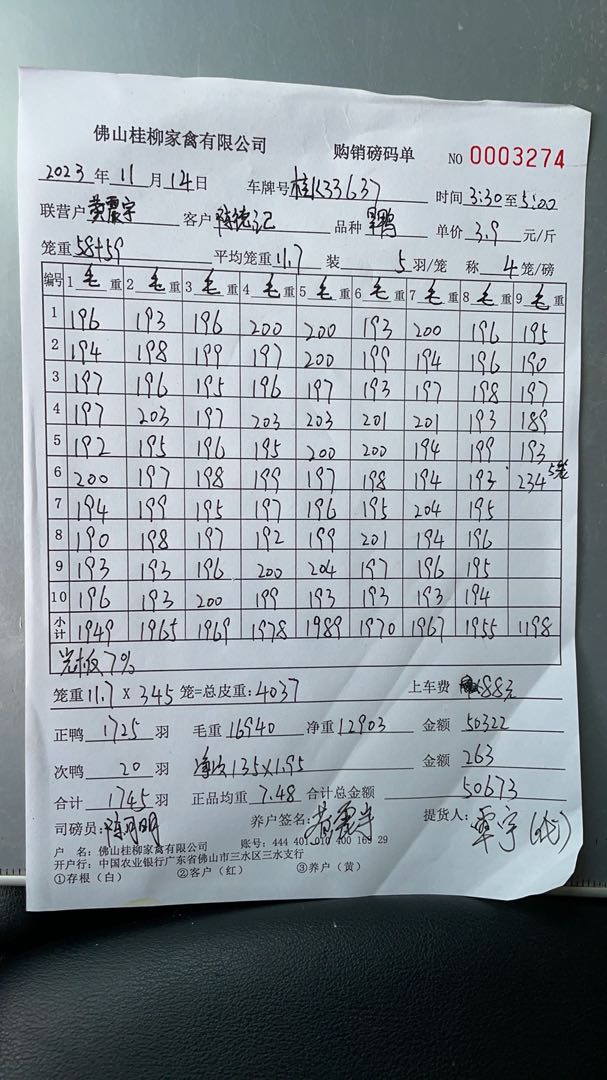 佛山桂柳家禽有限公司 购销磅码单 NO 0003274
2023 年 11 月 14 日 车牌号 桂K33637 时间 3:30 至 5:00
联营户 黄震宇 客户 德记 品种 鸭 单价 3.9 元/斤
笼重 58+59 平均笼重 11.7 装 5 羽/笼 称 4 笼/磅
编号 1 毛 重 2 毛 重 3 毛 重 4 毛 重 5 毛 重 6 毛 重 7 毛 重 8 毛 重 9 毛 重
1 196 193 196 200 200 193 200 196 195
2 194 198 199 197 200 199 194 196 190
3 197 196 195 196 197 193 197 198 197
4 197 203 197 203 203 201 201 193 189
5 192 195 196 195 200 200 194 199 193
6 200 197 198 199 197 198 194 193 234 5笼
7 194 199 195 197 196 195 204 195
8 190 198 197 192 199 201 194 196
9 193 193 196 200 204 197 196 195
10 196 193 200 199 193 193 193 194
小计 1949 1965 1969 1978 1989 1970 1967 1955 1198
光板7%
笼重 11.7 X 345 笼=总皮重: 4037 上车费 88元
正鸭 1725 羽 毛重 16940 净重 12903 金额 50322
次鸭 20 羽 135×1.95 金额 263
合计 1745 羽 正品均重 7.48 合计总金额 50673
司磅员: 明 养户签名: 黄震宇 提货人: 覃宇(代)
户 名: 佛山桂柳家禽有限公司 账号: 444 401 010 400 169 29
开户行: 中国农业银行广东省佛山市三水区三水支行
①存根（白） ②客户（红） ③养户（黄）